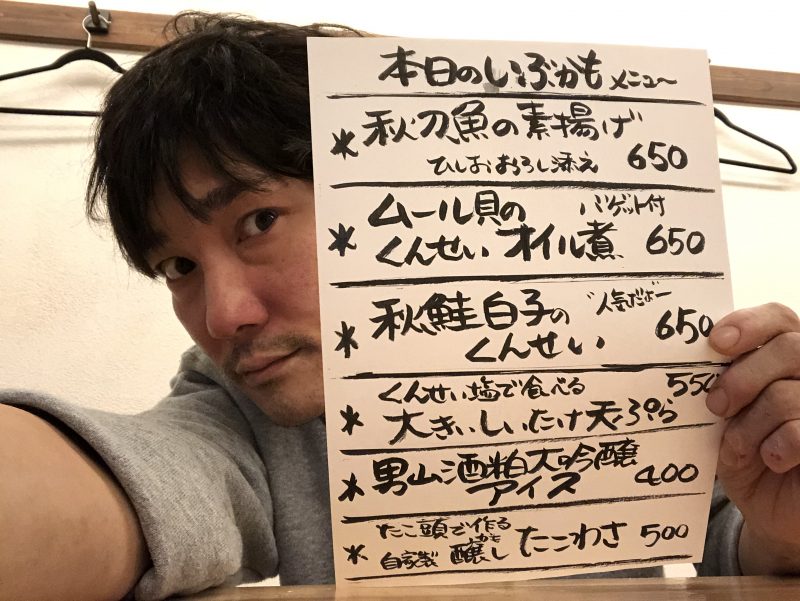 本日のいぶかもメニュー
*秋刀魚の素揚げ
ひしおおろし添え 650
*ムール貝の バゲット付
くんせいオイル煮 650
*秋鮭白子の 人気だよー
くんせい 650
くんせい塩で食べる 550
*大きいしいたけ天ぷら
*男山酒粕大吟醸
アイス 400
*たこ頭で作る
自家製 醸し たこわさ 500